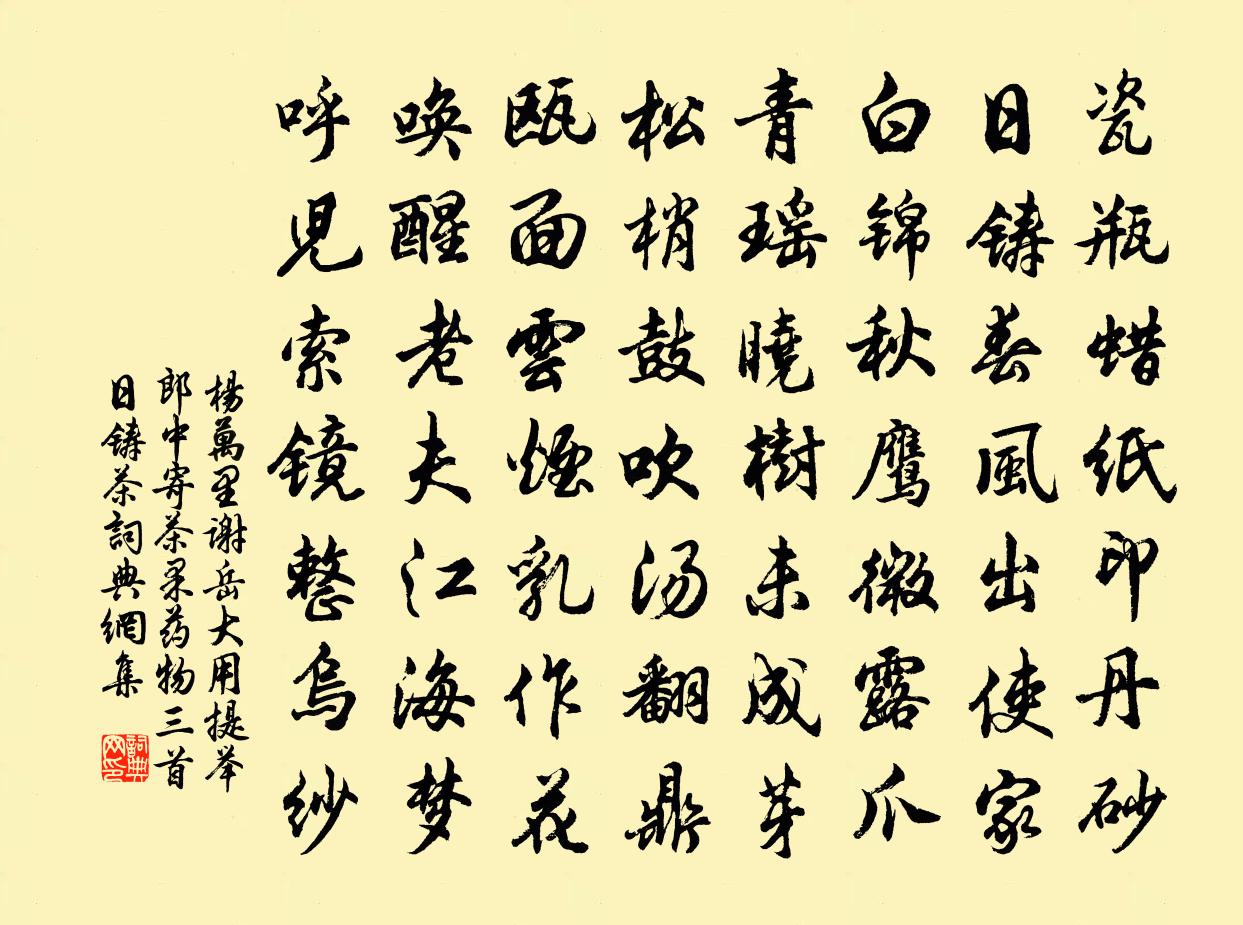 瓷瓶蜡纸印丹砂
日铸春風出使家
白锦秋鹰微露爪
青瑶曉樹未成芽
松梢鼓吹汤翻鼎
瓯面雲煙乳作花
唤醒老夫江海梦
呼児索镜整烏纱
楊萬里谢岳大用提举
郎中寄茶果药物三首
日铸茶詞典網集
詞典网印